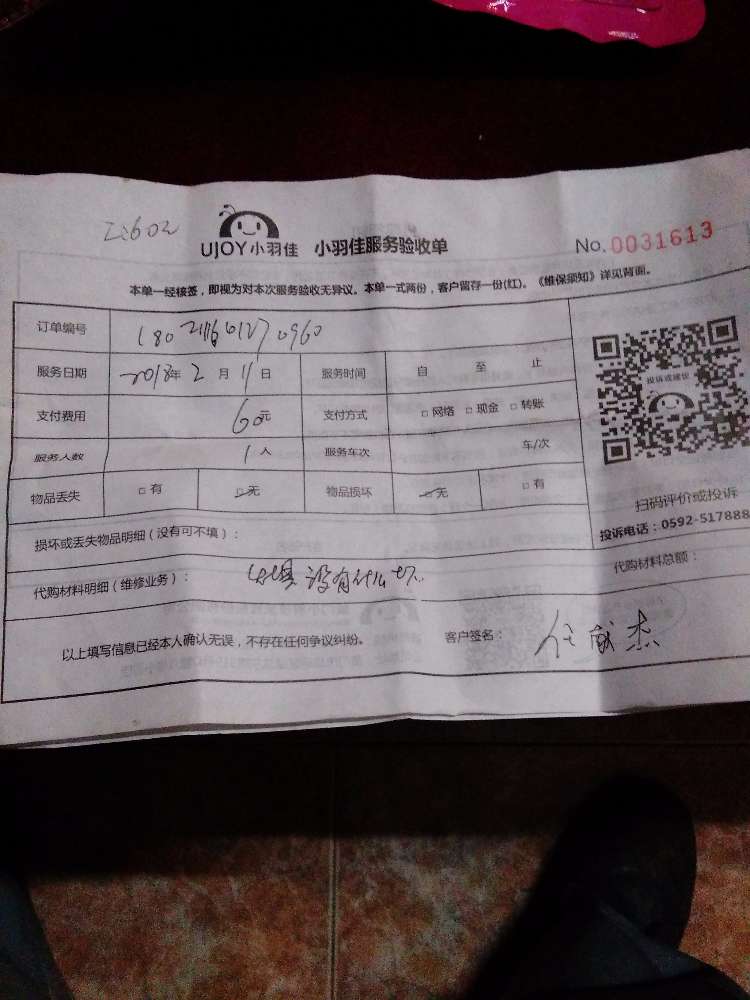 UJOY小羽佳 小羽佳服务验收单 No.0031613
本单一经核签，即视为对本次服务验收无异议。本单一式两份，客户留存一份(红)。《维保须知》详见背面。
订单编号
服务日期 2018年 2 月 11 日 服务时间 自 至 止
支付费用 60元 支付方式 □网络 □现金 □转账
服务人数 1人 服务车次 车/次
物品丢失 □有 □无 物品损坏 □无 □有
投诉或建议
扫码评价或投诉
投诉电话：0592-517888
损坏或丢失物品明细（没有可不填）：
代购材料明细（维修业务）： 没有什么 代购材料总额：
以上填写信息已经本人确认无误，不存在任何争议纠纷。 客户签名： 任献杰